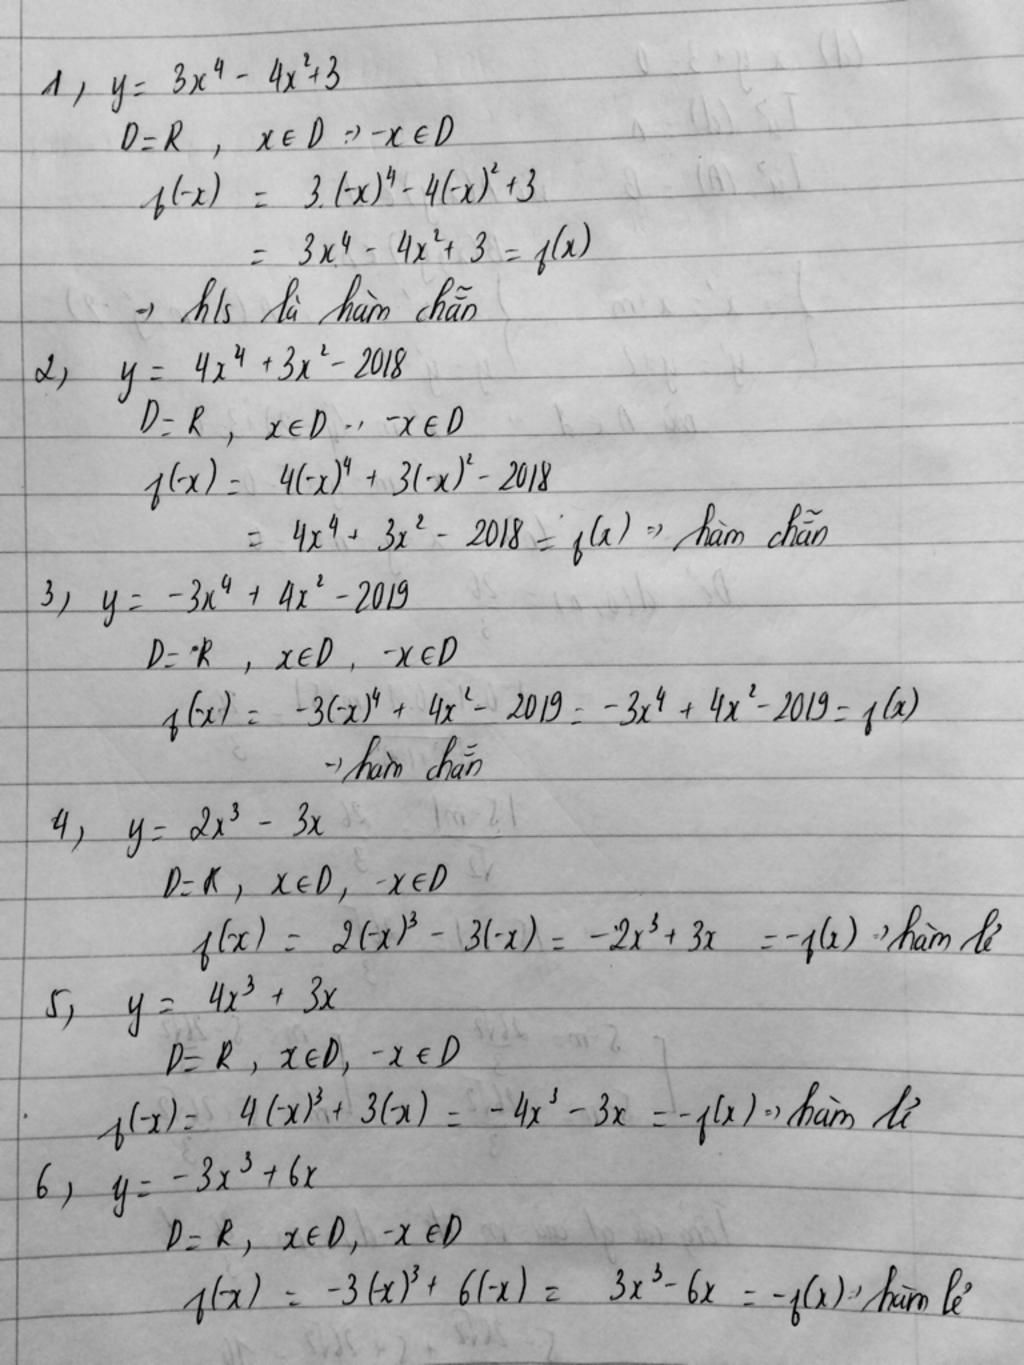 1, y = 3x⁴ - 4x² + 3
D = R , x ∈ D => -x ∈ D
f(-x) = 3.(-x)⁴ - 4(-x)² + 3
= 3x⁴ - 4x² + 3 = f(x)
→ hls là hàm chẵn
2, y = 4x⁴ + 3x² - 2018
D = R , x ∈ D -x ∈ D
f(-x) = 4(-x)⁴ + 3(-x)² - 2018
= 4x⁴ + 3x² - 2018 = f(x) => hàm chẵn
3, y = -3x⁴ + 4x² - 2019
D = R , x ∈ D , -x ∈ D
f(-x) = -3(-x)⁴ + 4x² - 2019 = -3x⁴ + 4x² - 2019 = f(x)
→ hàm chẵn
4, y = 2x³ - 3x
D = R , x ∈ D, -x ∈ D
f(-x) = 2(-x)³ - 3(-x) = -2x³ + 3x = -f(x) => hàm lẻ
5, y = 4x³ + 3x
D = R , x ∈ D, -x ∈ D
f(-x) = 4(-x)³ + 3(-x) = -4x³ - 3x = -f(x) => hàm lẻ
6, y = -3x³ + 6x
D = R , x ∈ D, -x ∈ D
f(-x) = -3(-x)³ + 6(-x) = 3x³ - 6x = -f(x) => hàm lẻ